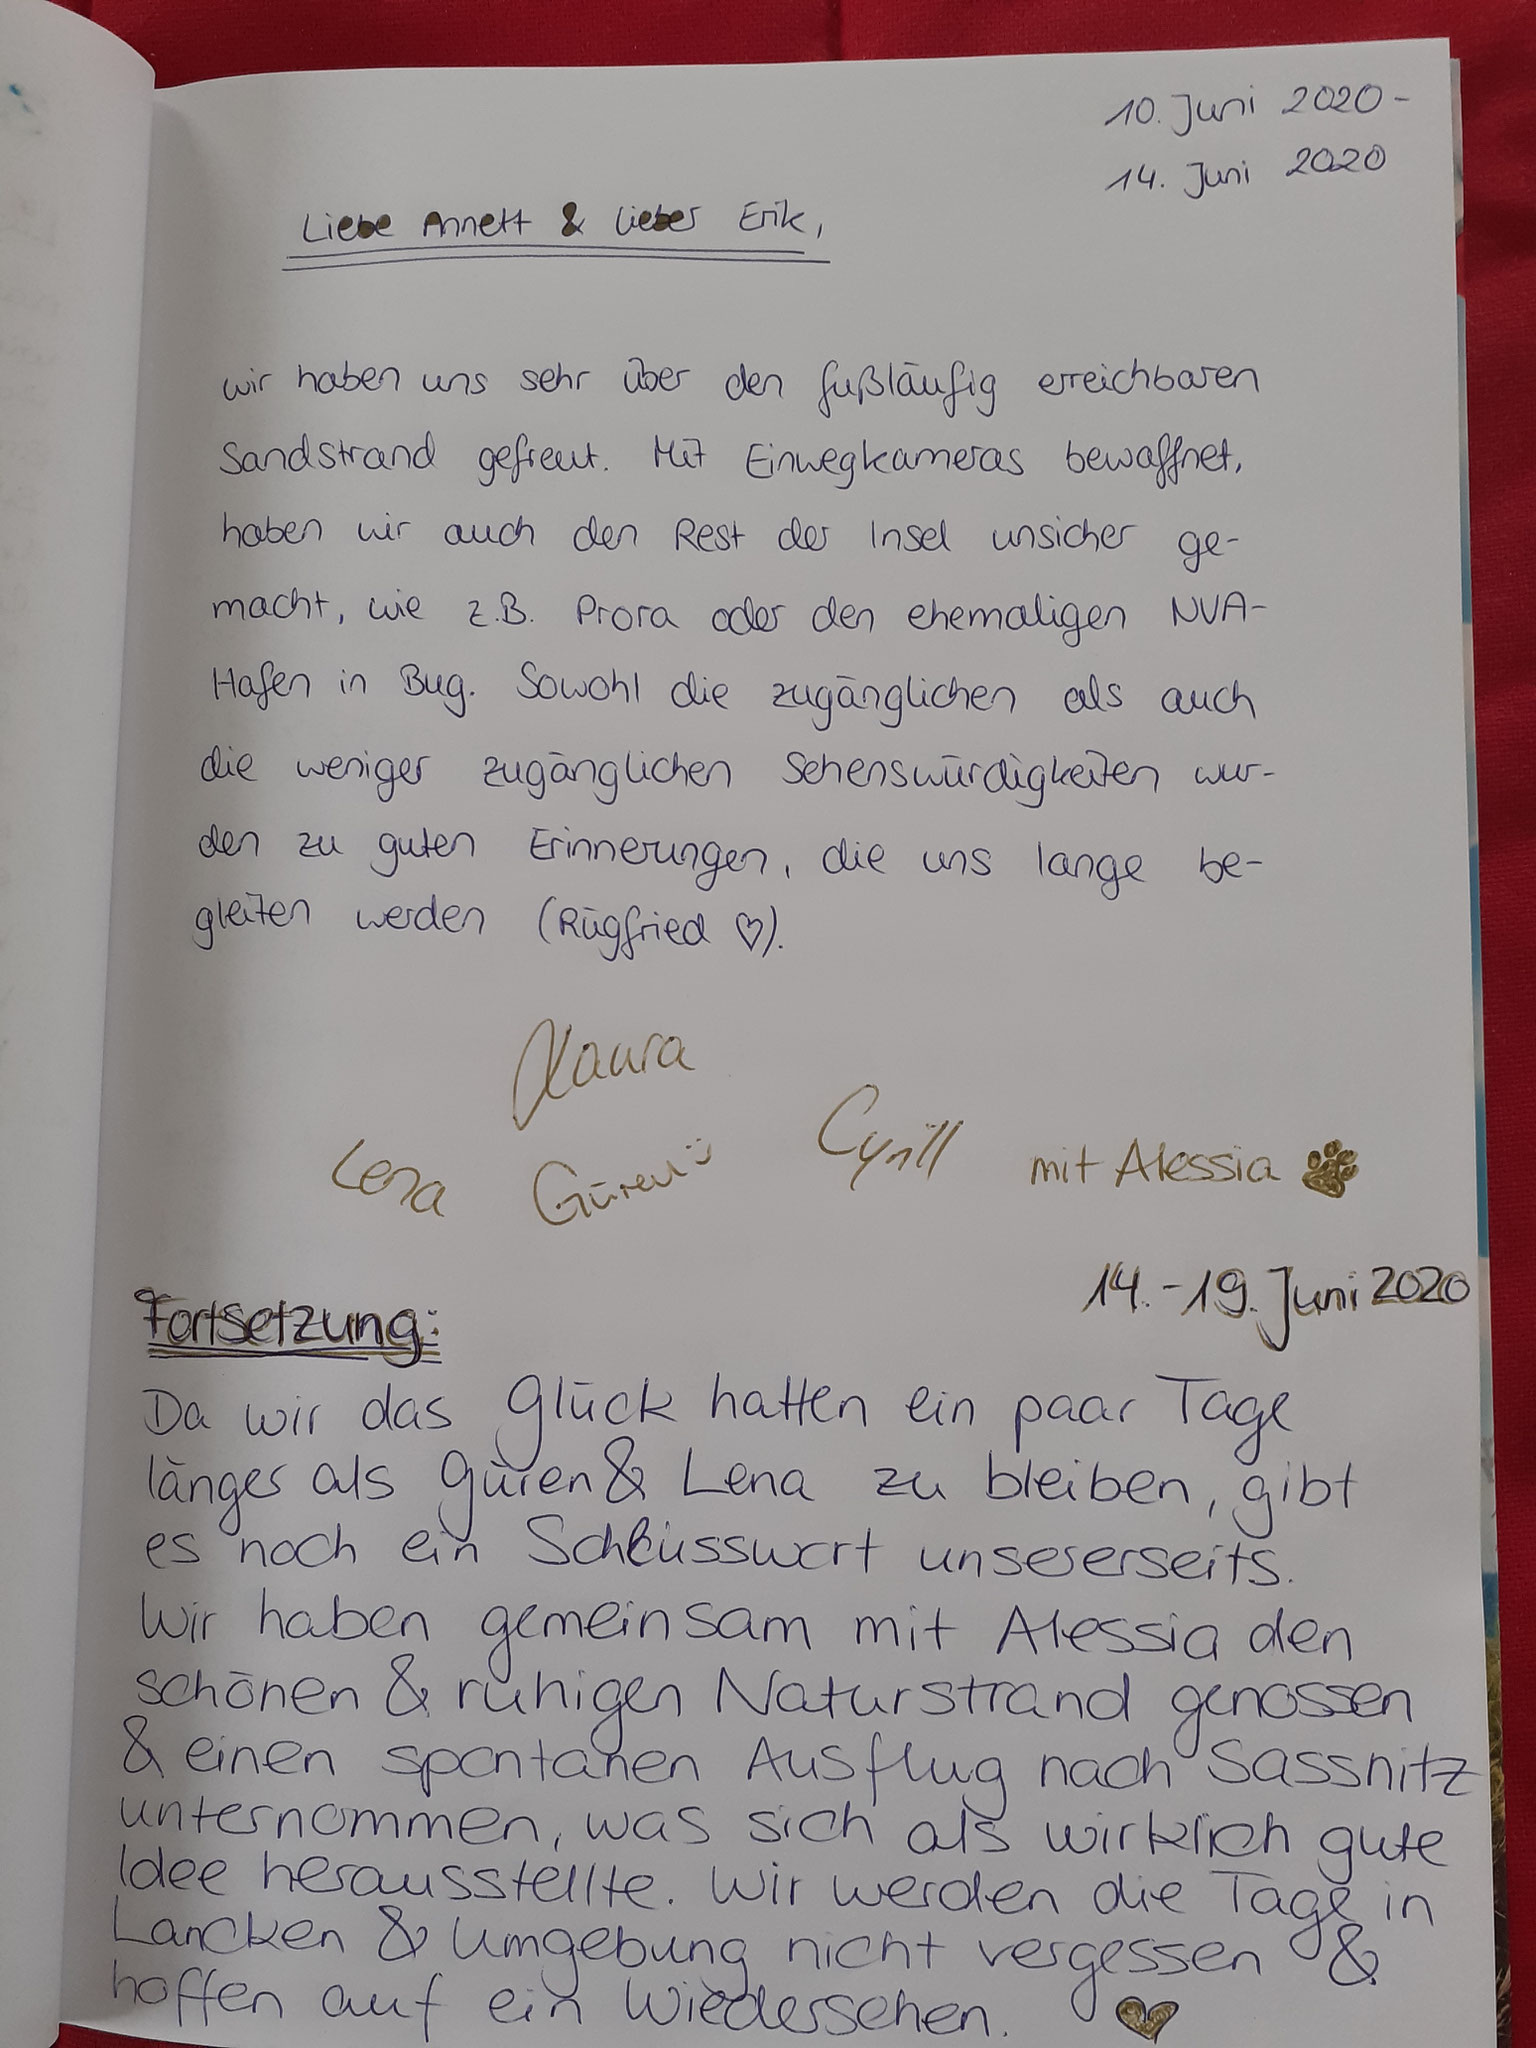 10. Juni 2020 -
14. Juni 2020
Liebe Annett & lieber Erik,
wir haben uns sehr über den fußläufig erreichbaren
Sandstrand gefreut. Mit Einwegkameras bewaffnet,
haben wir auch den Rest der Insel unsicher ge-
macht, wie z.B. Prora oder den ehemaligen NVA-
Hafen in Bug. Sowohl die zugänglichen als auch
die weniger zugänglichen Sehenswürdigkeiten wur-
den zu guten Erinnerungen, die uns lange be-
gleiten werden (Rügfried ♡).
Laura
Lena Güren ü Cyrill mit Alessia
14. - 19. Juni 2020
Fortsetzung:
Da wir das Glück hatten ein paar Tage
länger als Güren & Lena zu bleiben, gibt
es noch ein Schlusswort unsererseits.
Wir haben gemeinsam mit Alessia den
schönen & ruhigen Naturstrand genossen
& einen spontanen Ausflug nach Sassnitz
unternommen, was sich als wirklich gute
Idee herausstellte. Wir werden die Tage in
Lancken & Umgebung nicht vergessen &
hoffen auf ein Wiedersehen. ♡